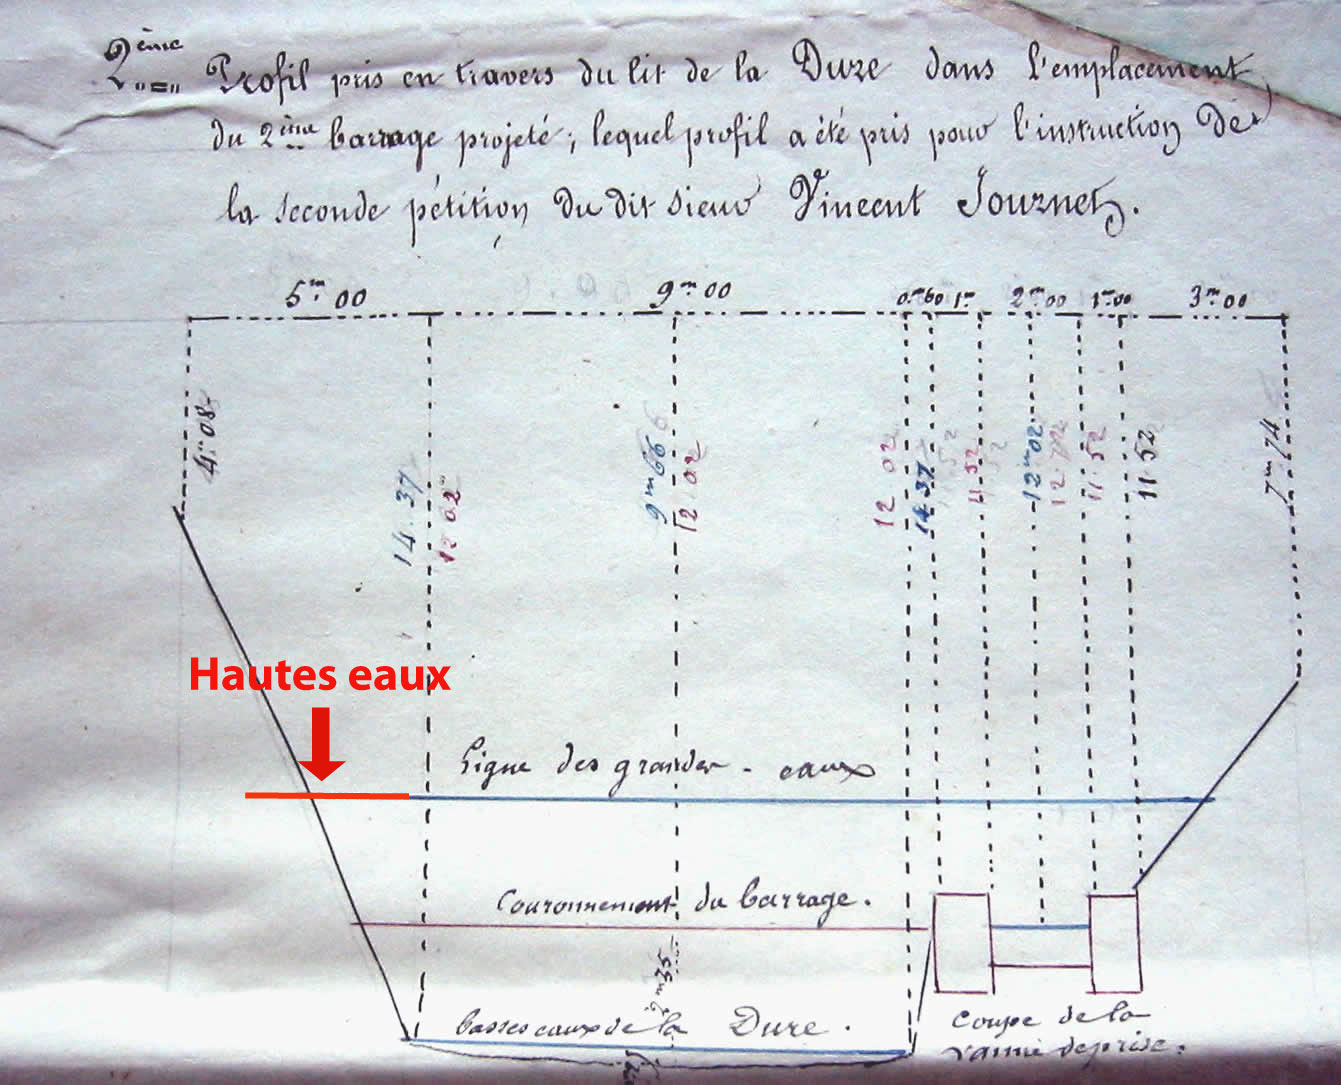 2ème Profil pris en travers du lit de la Dure dans l'emplacement
du 2ème barrage projeté; lequel profil a été pris pour l'instruction de
la seconde pétition du dit sieur Vincent Journet.
5m.00 9m00 0m60 1m 2m00 1m00 3m00
4m08 14.37 12 02 9m66 12 02 12 02 14 37 11 52 12m02 11 52 11 52 7m74
Hautes eaux
Ligne des grandes - eaux
Couronnement du barrage.
basses eaux de la Dure.
Coupe de la
vanne de prise.